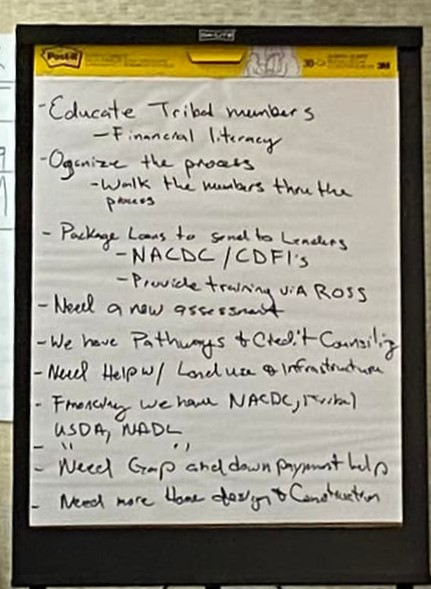 Post-it
3M
- Educate Tribal members
- Financial literacy
- Oganize the process
- Walk the members thru the
process
- Package Loans to send to Lenders
- NACDC / CDFI's
- Provide training via ROSS
- Need a new assessment
- We have Pathways & Credit Counsiling
- Need Help w/ Land use & Infrastructure
- Financing we have NACDC, Tribal
USDA, NADL
- " "
- Need Gap and down payment help
- Need more Home design & Construction